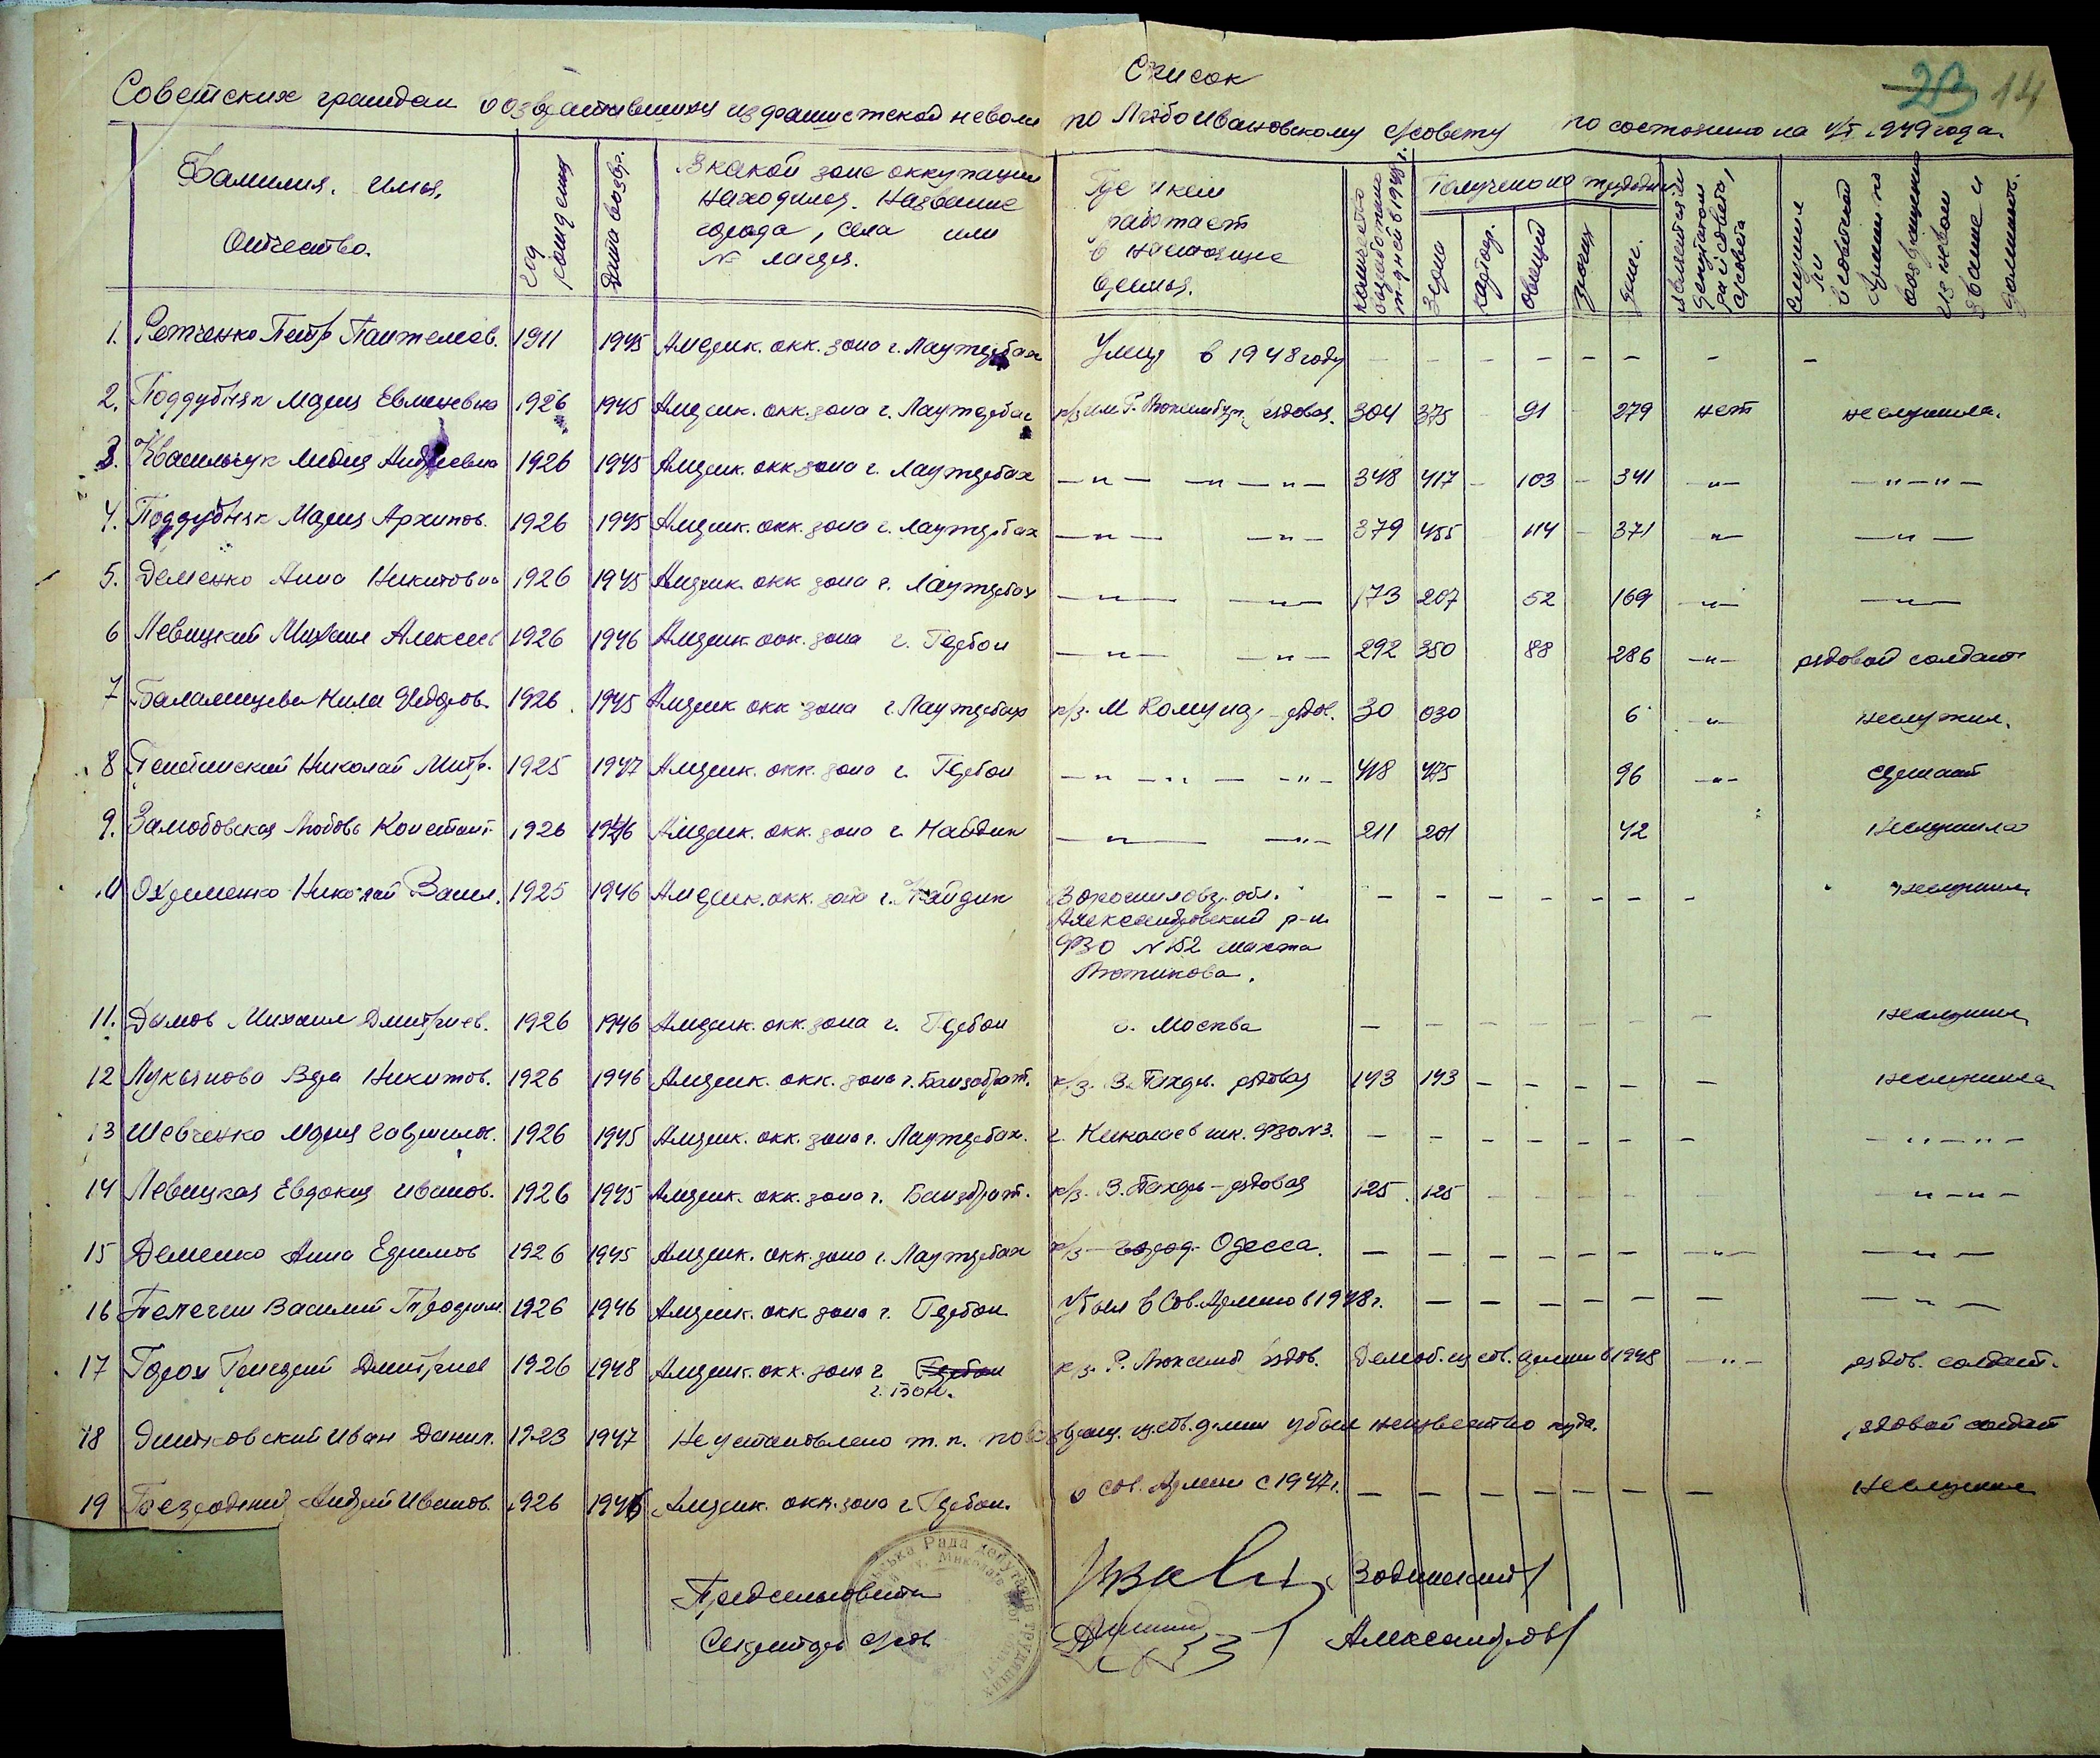 Список
23 14
Советских граждан возвратившихся из фашистской неволи по Любоивановскому с/совету по состоянию на 1/I 1949 года.
Фамилия, имя, Отчество.
год рождения
Дата возвр.
В какой зоне оккупации находился. Название города, села или № лагеря.
Где и кем работает в настоящее время.
количество выработано тр.дней в 1948 г.
Получено на трудодни
зерна
картоф.
овощей
прочих
денег.
является ли депутатом рай совета, с/совета
служил ли в советской Армии по возвращении из неволи звание и должность.
1. Ретченко Петр Пантелеев. 1911 1945 Америк. окк. зона г. Лаутербах Умер в 1948 году – – – – – – – –
2. Поддубняк Мария Евменевна 1926 1945 Америк. окк. зона г. Лаутербах к/з им Р. Люксембург рядовая. 304 375 – 91 – 279 нет не служила.
3. Квасильчук Лидия Андреевна 1926 1945 Америк. окк. зона г. Лаутербах –"– –"–"– 348 417 – 103 – 341 –"– –"–"–
4. Поддубняк Мария Архипов. 1926 1945 Америк. окк. зона г. Лаутербах –"– –"– 379 455 114 – 371 –"– –"–
5. Деменко Анна Никитовна 1926 1945 Америк. окк зона г. Лаутербах –"– –"– 173 207 52 169 –"– –"–
6 Левицкий Михаил Алексеев 1926 1946 Америк. окк. зона г. Гербон –"– –"– 292 350 88 286 –"– рядовой солдат
7 Баламицева Нила Федоров. 1926 1945 Америк окк зона г. Лаутербах к/з. М Комуна, – рядов. 30 030 6 –"– не служил.
8 Николай Митр. 1925 1947 Америк. окк. зона г. Гербон –"– –"– –"– 418 475 96 –"– сержант
9. Замобовская Любовь Констант. 1926 1946 Америк. окк. зона г. Найдин –"– –"– 211 201 42 не служила
10 Охрименко Николай Васил. 1925 1946 Америк. окк. зона г. Найдин Ворошиловгр. обл. – – – – – – – не служил
Александровский р-н
ФЗО № 152 шахта
Лютикова.
11. Дымов Михаил Дмитриев. 1926 1946 Америк. окк. зона г. Гербон г. Москва – – – – – – – не служил
12 Лукьянова Вера Никитов. 1926 1946 Америк. окк. зона г. к/з. В. Пахарь. рядовая 143 143 – – – – – не служила
13 Шевченко Мария Гаврилов. 1926 1945 Америк. окк. зона г. Лаутербах. г. Николаев шк. ФЗО № 3. – – – – – – – –"–"–
14 Левицкая Евдокия Иванов. 1926 1945 Америк. окк. зона г. к/з. В. Пахарь – рядовая 125. 125 – – – – – –"–"–
15 Деменко Анна Ефимов 1926 1945 Америк. окк. зона г. Лаутербах к/з – город. Одесса. – – – – – – –"– –"–
16 Телегин Василий Трофим. 1926 1946 Америк. окк. зона г. Гербон Убыл в Сов. Армию в 1948 г. – – – – – – –"–
17 Горох Григорий Дмитриев 1926 1948 Америк. окк. зона г Гербон к/з. Р. Люксемб рядов. Демоб. из сов. армии в 1948 –"– рядов. солдат.
г. Бон.
18 Иван Данил. 1923 1947 Не установлено т. к. по возвращ. из сов. армии убыл неизвестно куда. рядовой солдат
19 Безродний Андрей Иванов. 1926 1946 Америк. окк. зона г Гербон. в сов. Армии с 1947 г. – – – – – – – не служил
Предсельсовета Водинский
Секретарь с/сов Александров
Рада депутатів трудящих